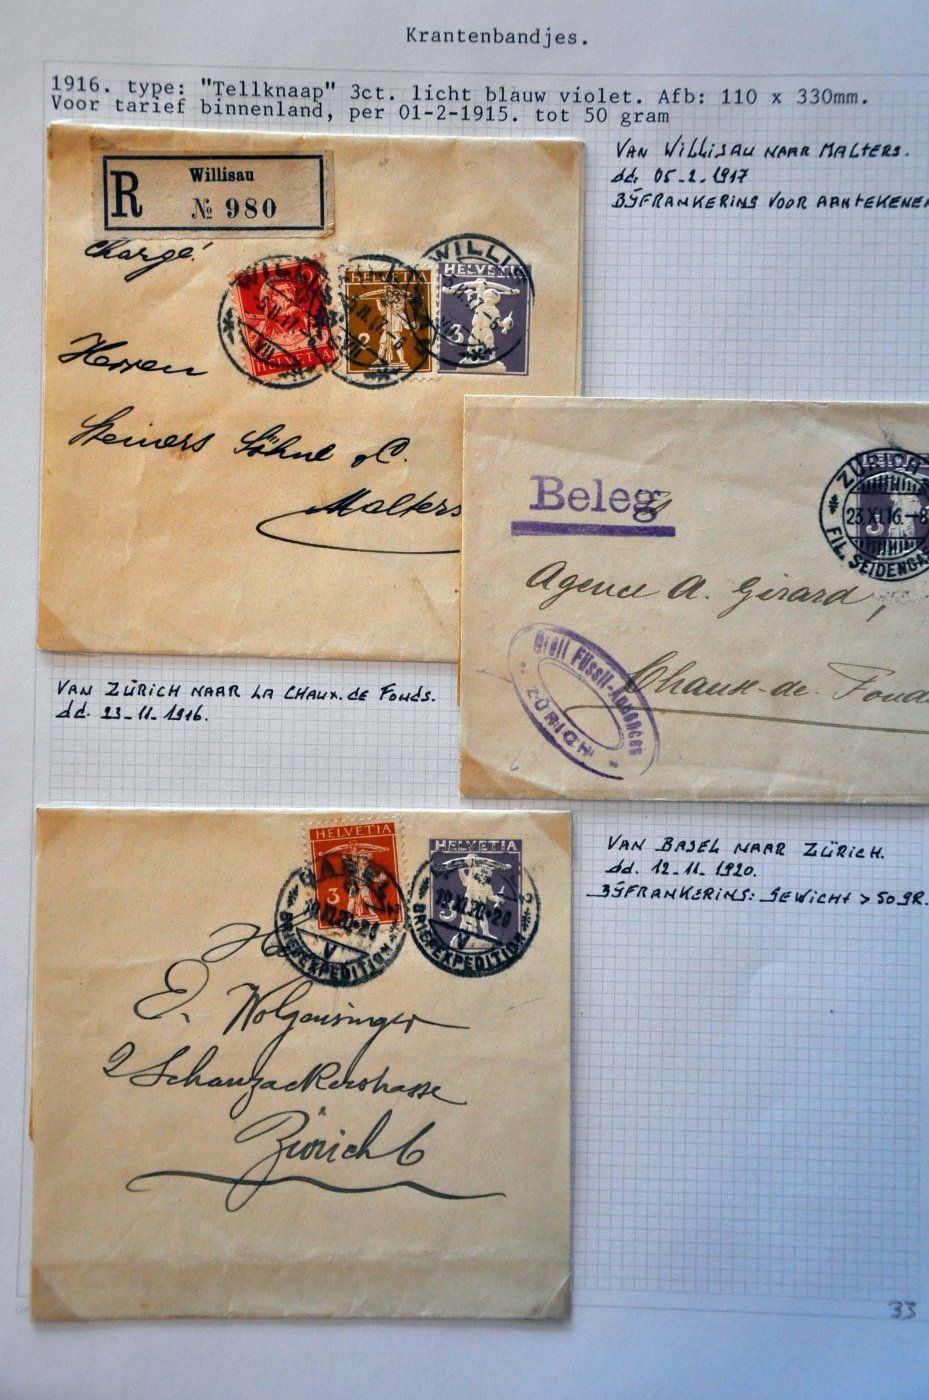 Krantenbandjes.
1916. type: "Tellknaap" 3ct. licht blauw violet. Afb: 110 x 330mm.
Voor tarief binnenland, per 01-2-1915. tot 50 gram
VAN WILLISAU NAAR MALTERS.
dd. 05-2-1917
BYFRANKERING VOOR AANTEKENEN
R
Willisau
№ 980
chargé!
WILLIS
WILLIS
HELVETIA
HELVETIA
HELVETIA
2
3
Herren
Steiners Söhne & C.
Malters
Beleg
ZÜRICH
23.XI.16.-8
FIL. SEIDENGA
3
Agence A. Girard,
Chaux-de-Fond
Orell Füssli-Annoncen
ZÜRICH
VAN ZÜRICH NAAR LA CHAUX. DE FONDS.
dd. 23-11-1916.
HELVETIA
HELVETIA
3
3
BASEL 2
BRIEFEXPEDITION
V
BRIEFEXPEDITION
V
E. Wolgensinger
2 Schanzackerstrasse
Zürich 6
VAN BASEL NAAR ZÜRICH.
dd. 12-11-1920.
BYFRANKERING: GEWICHT > 50 GR.
33